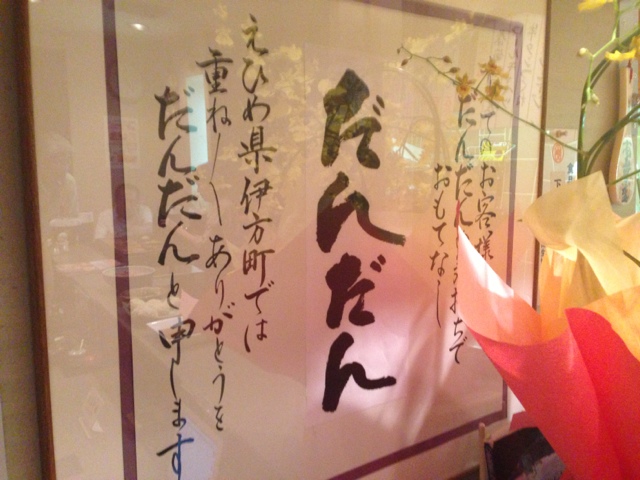 てのお客様
だんだん
きもちで
おもてなし
だんだん
えひめ県伊方町では
重ね〳〵ありがとうを
だんだんと申します